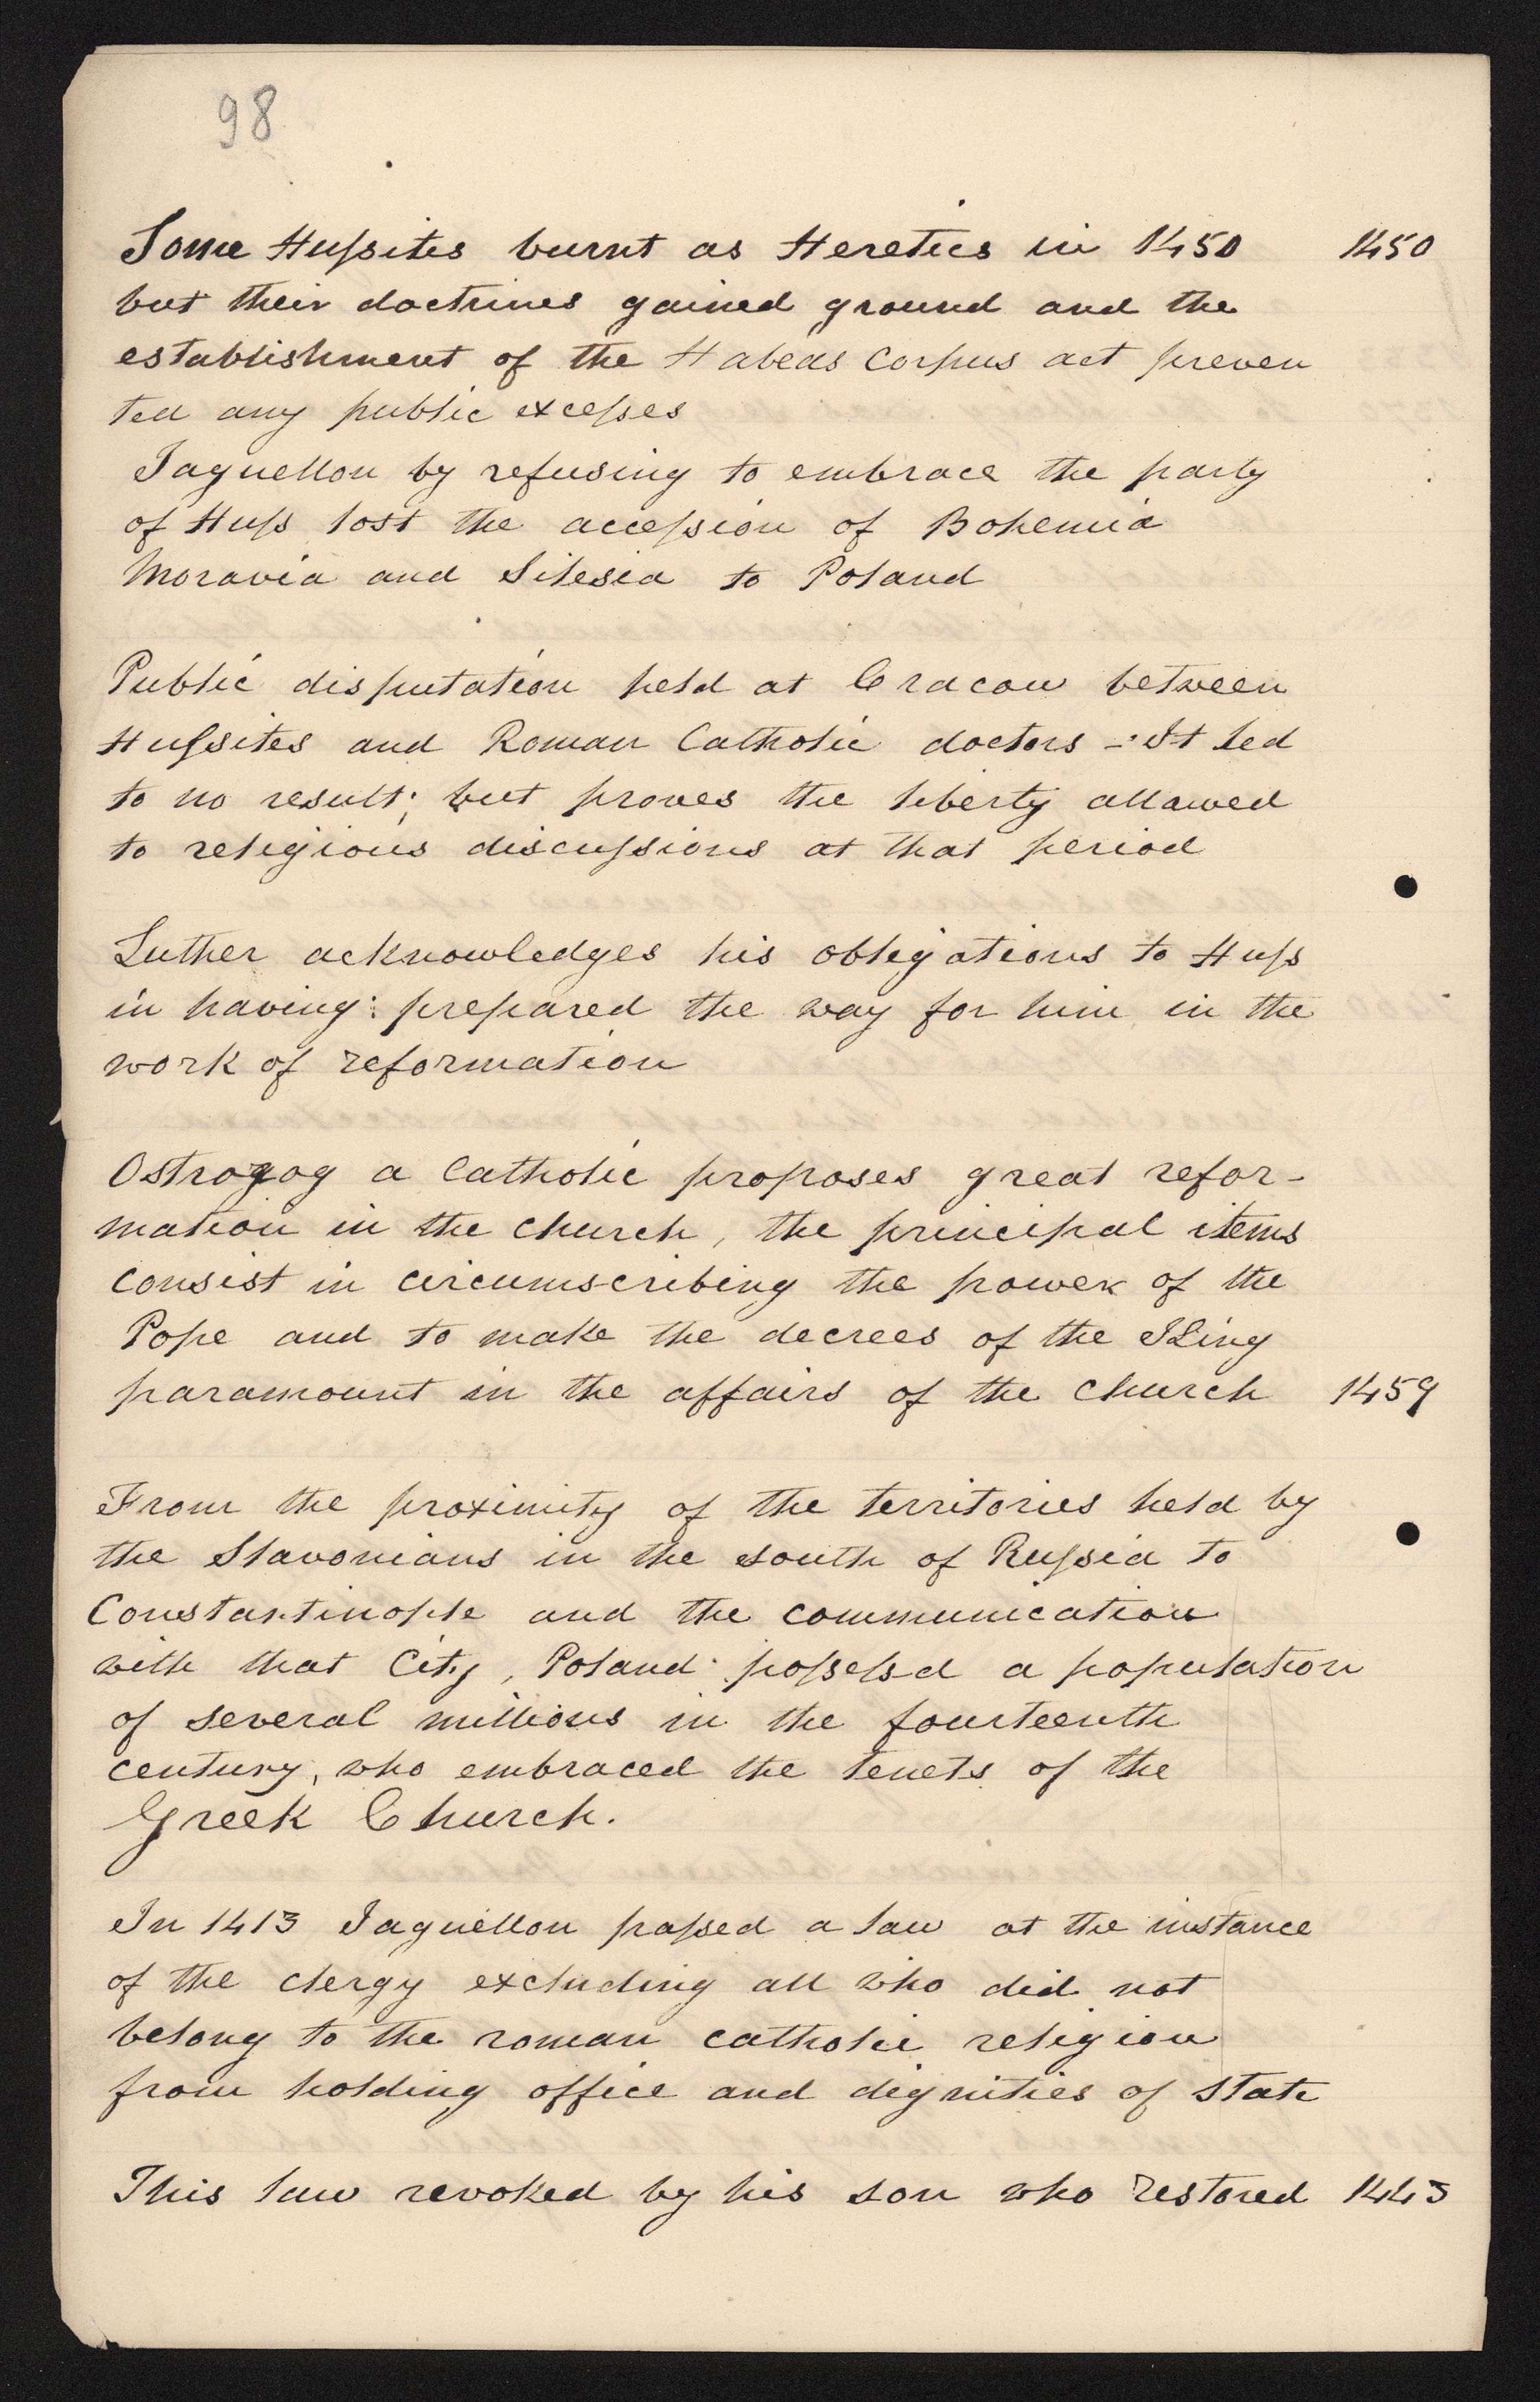 98
Some Hussites burnt as Heretics in 1450 1450
but their doctrines gained ground and the
establishment of the Habeas Corpus act preven
ted any public excesses
Jaguellon by refusing to embrace the party
of Huss lost the accession of Bohemia
Moravia and Silesia to Poland
Public disputation held at Cracow between
Hussites and Roman Catholic doctors - It led
to no result; but proves the liberty allowed
to religious discussions at that period
Luther acknowledges his obligations to Huss
in having prepared the way for him in the
work of reformation
Ostrogog a Catholic proposes great refor-
mation in the church, the principal items
consist in circumscribing the power of the
Pope and to make the decrees of the King
paramount in the affairs of the church 1459
From the proximity of the territories held by
the Slavonians in the south of Russia to
Constantinople and the communication
with that City, Poland possessd a population
of several millions in the fourteenth
century, who embraced the tenets of the
Greek Church.
In 1413 Jaguellon passed a law at the instance
of the clergy excluding all who did not
belong to the roman catholic religion
from holding office and dignities of state
This law revoked by his son who restored 1443